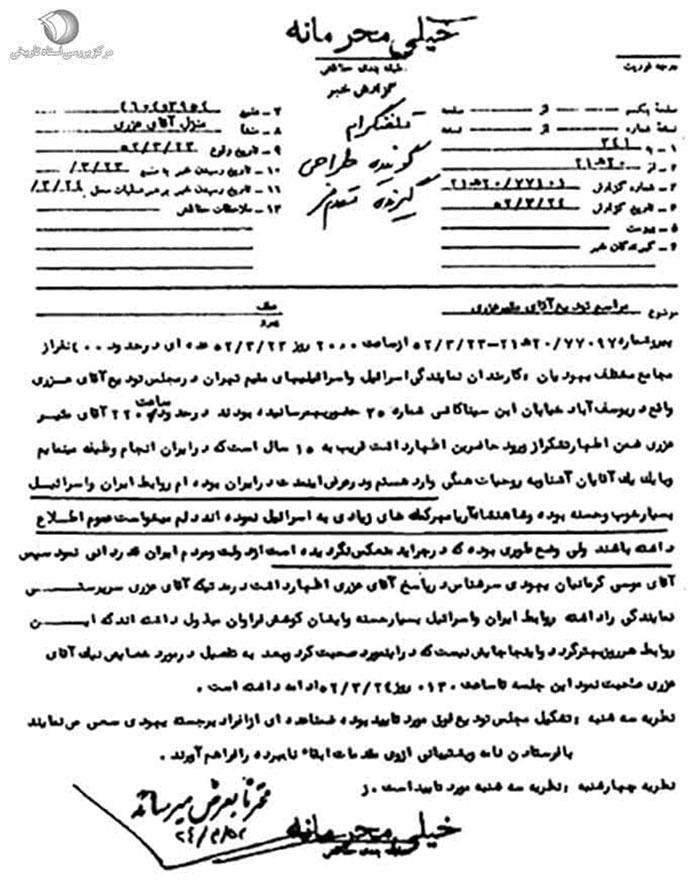 مرکز بررسی اسناد تاریخی
خیلی محرمانه
طبقه بندی حفاظتی
گزارش خبر
درجه فوریت
تلفنگرام
گوینده طراحی
گیرنده
صفحه یکم از صفحه
نسخه شماره از نسخه
۱ – به ۳۴۱
۲ – از ۲۰ﻫ۲۱
۳ – شماره گزارش ۲۰/۷۷۱۰۱ﻫ۲۱
۴ – تاریخ گزارش ۵۲/۳/۲۴
۵ – پیوست
۶ – گیرندگان خبر
۷ – منبع
۸ – منشا منزل آقای عزری
۹ – تاریخ وقوع ۵۲/۳/۲۳
۱۰ – تاریخ رسیدن خبر به منبع ۳/۲۳/
۱۱ – تاریخ رسیدن خبر به رهبر عملیات محل
۱۲ – ملاحظات حفاظتی
موضوع مراسم تودیع آقای مئیر عزری
عطف
پیرو
پیرو شماره ۲۰/۷۷۰۹۷ﻫ۲۱-۵۲/۳/۲۳ از ساعت ۲۰۰۰ روز ۵۲/۳/۲۳ عده ای در حدود ۴۰۰ نفر از
مجامع مختلف یهودیان ، کارمندان نمایندگی اسرائیل و اسرائیلیهای مقیم تهران در مجلس تودیع آقای عزری
واقع در یوسف آباد خیابان ابن سینا کاشی شماره ۳۵ حضور بهم رسانیده بودند در حدود ساعت ۲۲۰۰ آقای مئیر
عزری ضمن اظهار تشکر از ورود حاضرین اظهار داشت قریب به ۱۵ سال است که در ایران انجام وظیفه مینمایم
و با یک یک آقایان آشنا و به روحیات همگی وارد هستم و در عرض اینمدت در ایران بوده ام روابط ایران و اسرائیل
بسیار خوب و حسنه بوده و شاهنشاه آریامهر کمک های زیادی به اسرائیل نموده اند دلم میخواست عموم اطلاع
داشته باشند ولی وضع طوری بوده که در جراید منعکس نگردیده است از دولت و مردم ایران قدردانی نمود سپس
آقای موسی کرمانیان یهودی سرشناس در پاسخ آقای عزری اظهار داشت در مدتیکه آقای عزری سرپرستی
نمایندگی را داشته روابط ایران و اسرائیل بسیار حسنه و ایشان کوشش فراوان مبذول داشته اند که این
روابط هر روز بهتر گردد و اینجا جایش نیست که در اینمورد صحبت کرد و بعد به تفصیل در مورد خصایص نیک آقای
عزری صحبت نمود این جلسه تا ساعت ۰۱۳۰ روز ۵۲/۳/۲۴ ادامه داشته است .
نظریه سه شنبه ، تشکیل مجلس تودیع فوق مورد تایید بوده ضمنا عده ای از افراد برجسته یهودی سعی می نمایند
با فرستادن نامه و پشتیبانی از وی مقدمات ابقاء نامبرده را فراهم آورند .
نظریه چهارشنبه ، نظریه سه شنبه مورد تایید است . ز
محترماً بعرض میرساند
۲۴/۳/۵۲
خیلی محرمانه
طبقه بندی حفاظتی